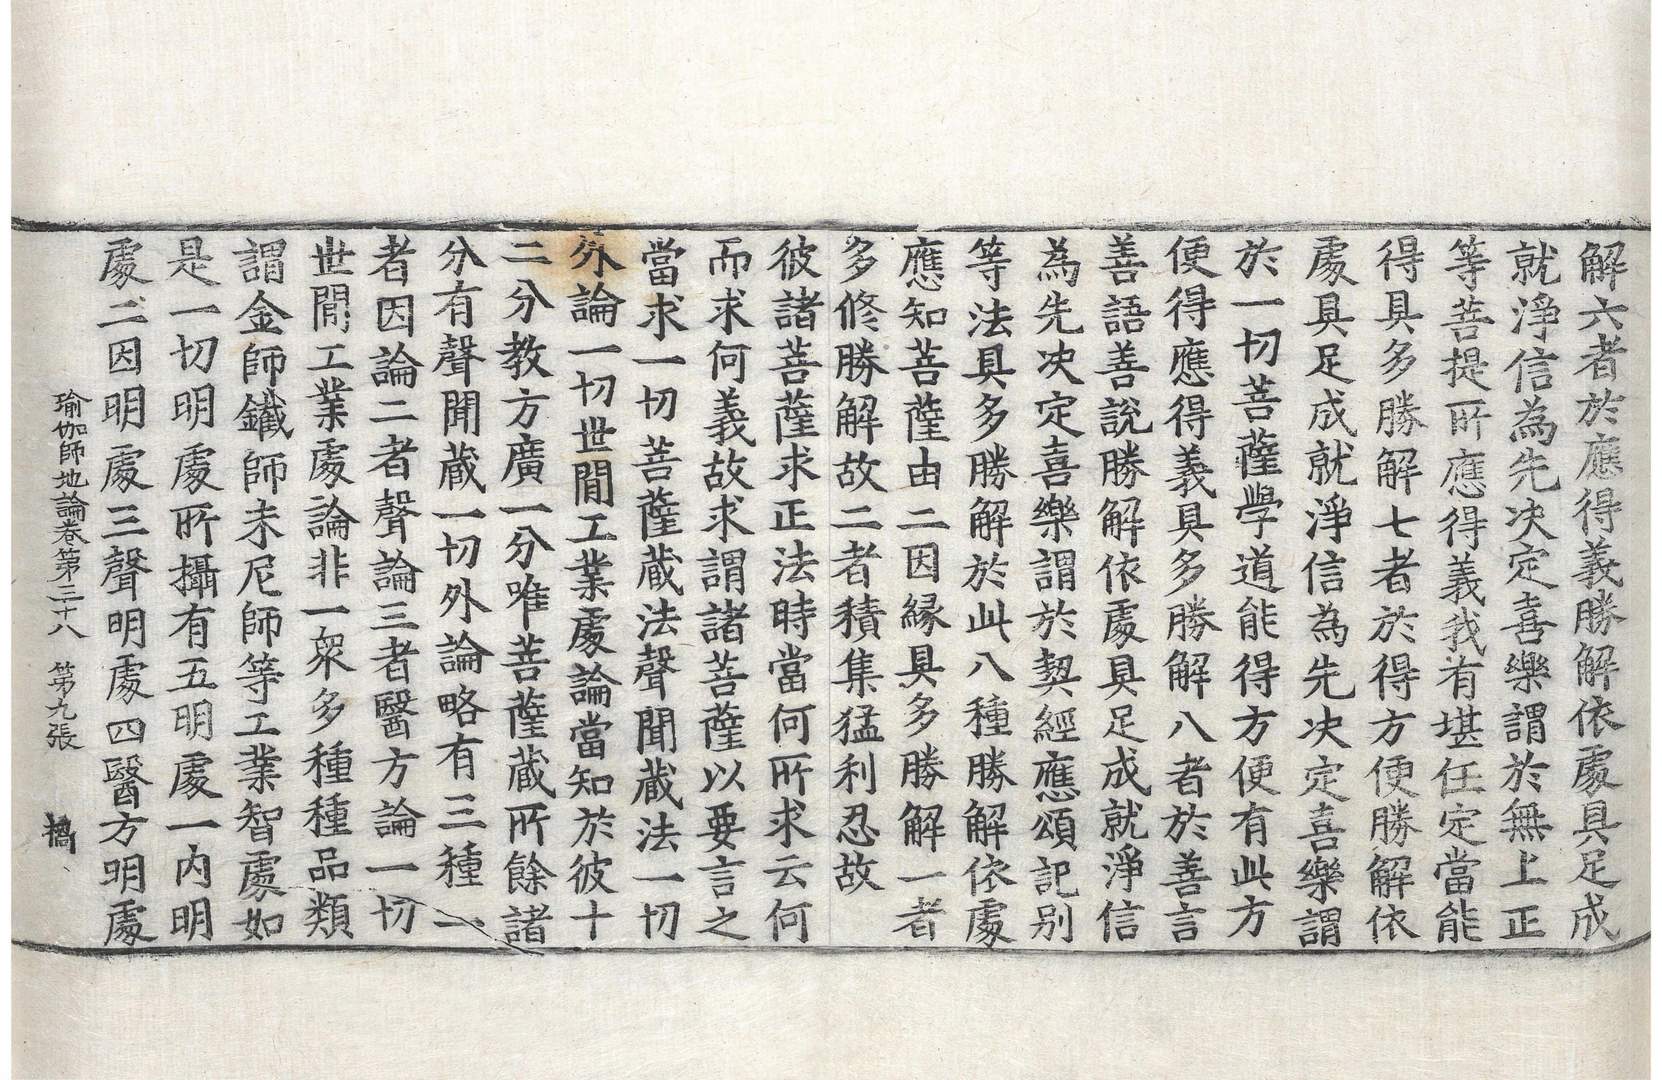 解六者於應得義勝解依處具足成
就淨信為先决定喜樂謂於無上正
等菩提所應得義我有堪任定當能
得具多勝解七者於得方便勝解依
處具足成就淨信為先决定喜樂謂
於一切菩薩學道能得方便有此方
便得應得義具多勝解八者於善言
善語善說勝解依處具足成就淨信
為先决定喜樂謂於契經應頌記别
等法具多勝解於此八種勝解依處
應知菩薩由二因緣具多勝解一者
多修勝解故二者積集猛利忍故
彼諸菩薩求正法時當何所求云何
而求何義故求謂諸菩薩以要言之
當求一切菩薩藏法聲聞藏法一切
外論一切世間工業處論當知於彼十
二分教方廣一分唯菩薩藏所餘諸
分有聲聞藏一切外論略有三種一
者因論二者聲論三者醫方論一切
世間工業處論非一衆多種種品類
謂金師鐵師末尼師等工業智處如
是一切明處所攝有五明處一内明
處二因明處三聲明處四醫方明處
瑜伽師地論卷第三十八 第九張 橋